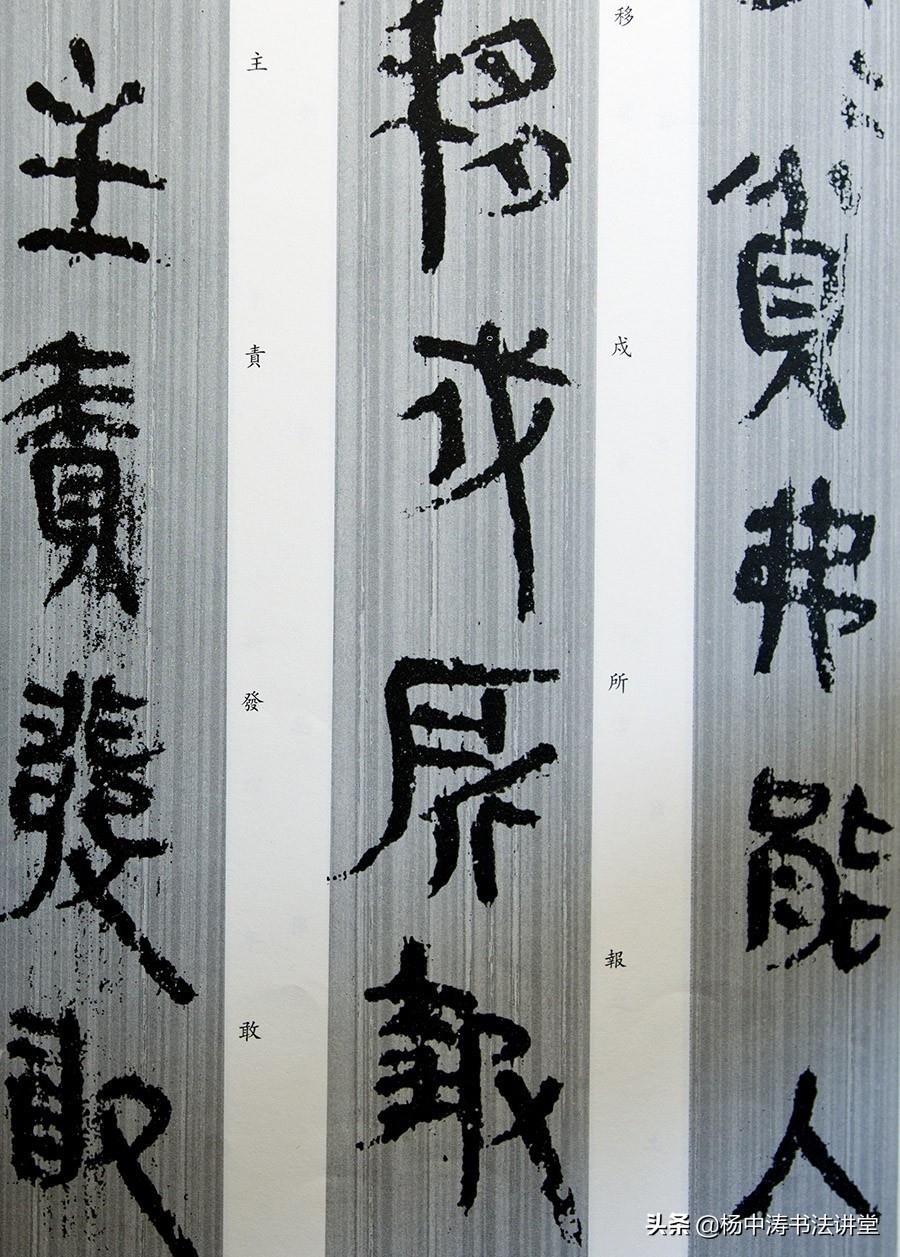 負弗能人
移戍所報
移戍所報
主責發敢
主責發敢
头条 @杨中涛书法讲堂